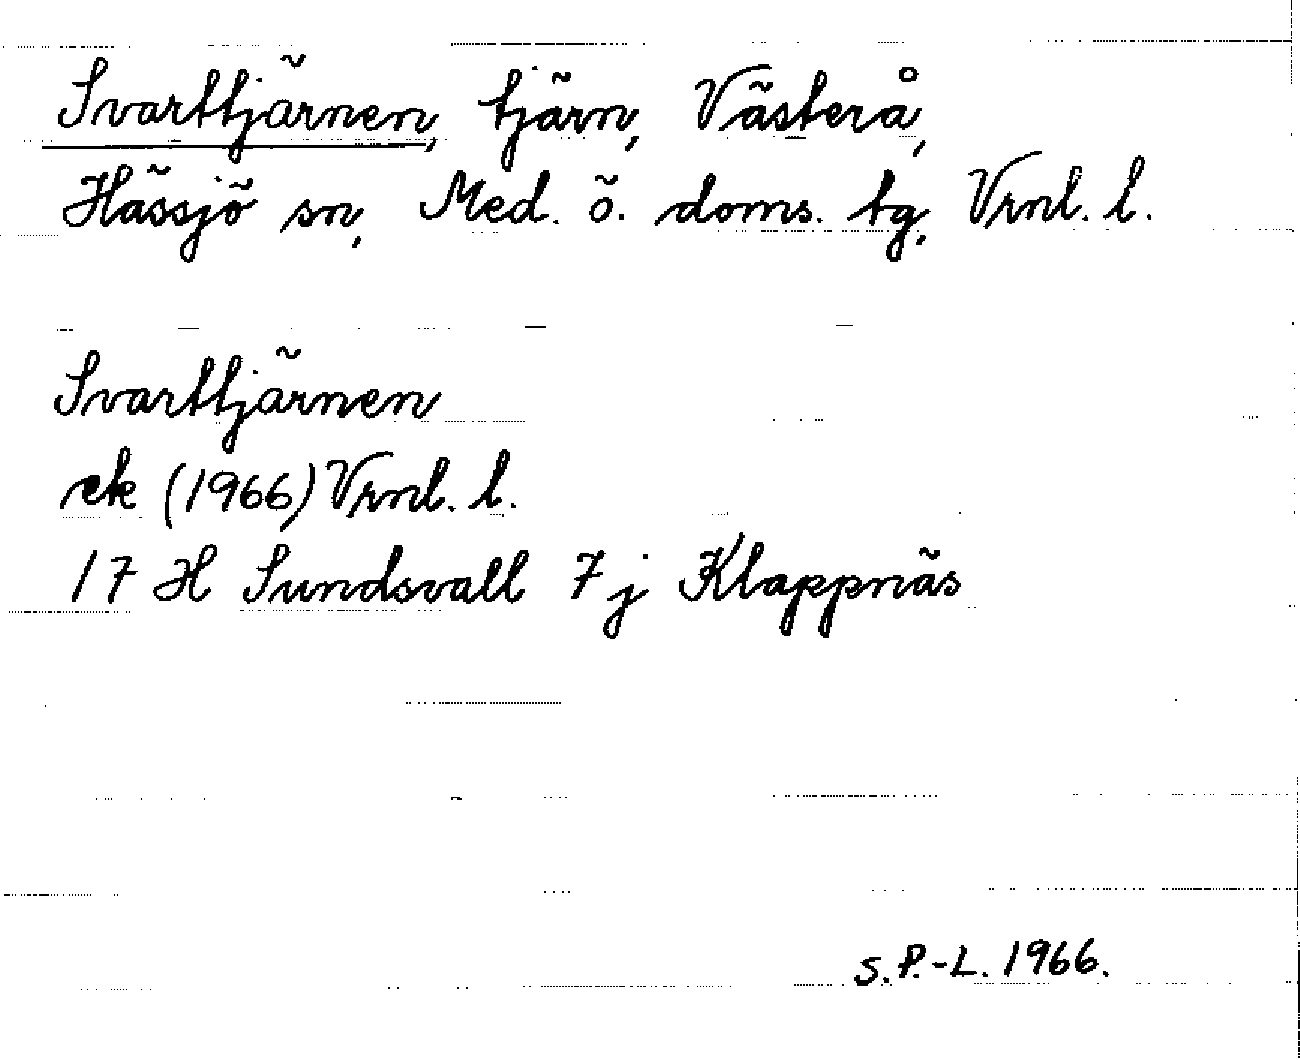 Svarttjärnen, tjärn, Västerå,
Hässjö sn, Med. ö. doms. tg, Vrnl. l.
Svarttjärnen
ek (1966) Vrnl. l.
17 H Sundsvall 7 j Klappnäs
S.P.-L. 1966.